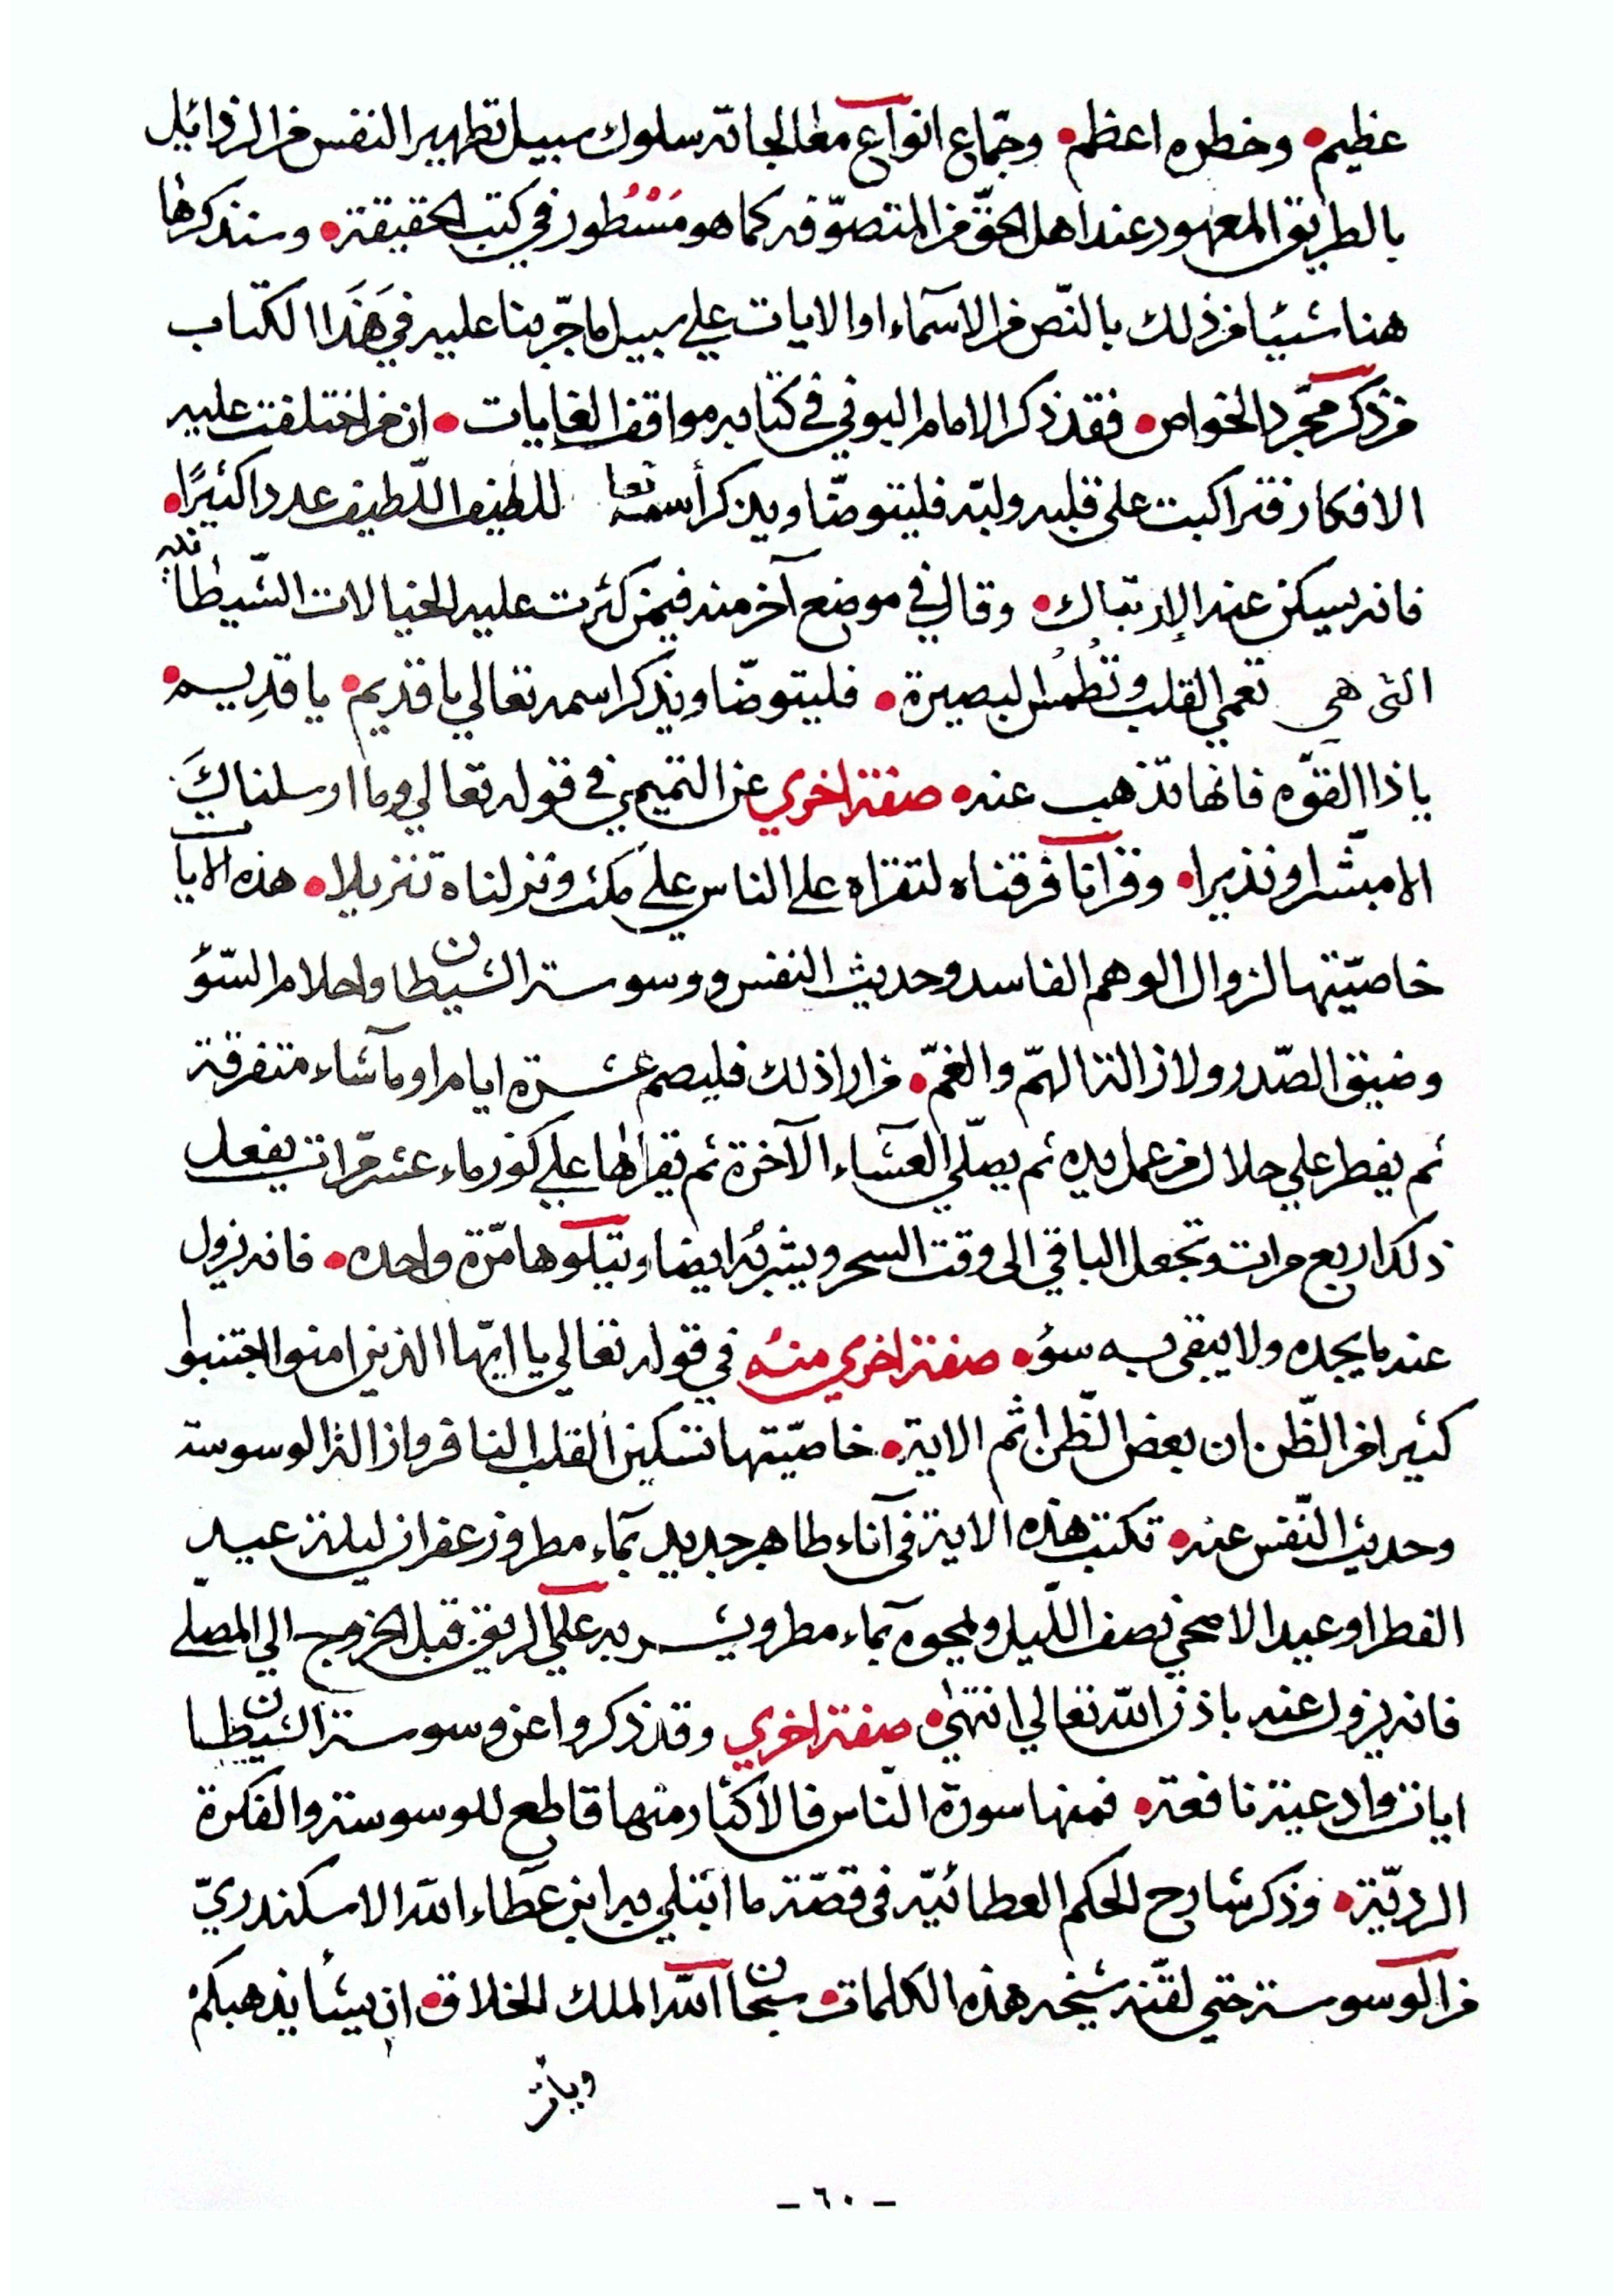 عظيم • وخطره اعظم • وجماع انواع معالجاته سلوك سبيل تطهير النفس من الرذائل
بالطريق المعهود عند اهل الحق من المتصوّفه كما هو مَسْطُور في كتب الحقيقة • وسنذكرها
هنا شيئا من ذلك بالنّص من الاسماء او الايات علي سبيل ما جرّبنا عليه في هَذَا الكتاب
من ذكر مجرّد الخواص • فقد ذكر الامام البوني في كتابه مواقف الغايات • ان من اختلفت عليه
الافكار فتراكبت على قلبه ولبّه فليتوضّا ويذكر أسمه تعا للطيف اللّطيف عددا كثيرًا •
فانه يسكن عند الإرتباك • وقال في موضع آخر منه فيمن كثرت عليه الخيالات الشّيطانيه
التى هي تعمي القلب وتُطمُس البصيرة • فليتوضّا ويذكر اسمه تعالي يا قديم • يا قدِيم •
يا ذا القوّه فانها تذهب عنه • صفة اخري عن التميمي في قوله تعالي وما ارسلناكَ
الا مبشّرا ونذيرا • وقرانا فرقناه لتقراه على الناس علي مكث ونزلناه تنزيلا • هذه الايات
خاصيّتها لزوال الوهم الفاسد وحديث النفس ووسوسة الشيطان واحلام السّؤ
وضيق الصّدر ولازالة الهمّ والغمّ • من اراد ذلك فليصم عشرة ايام او ما شاء متفرقة
ثم يفطر علي حلال من عمل يده ثم يصلّي العشاء الآخرة ثم يقرأها علي كوز ماء عشر مّرات يفعل
ذلك اربع مرات وتجعل الباقي الى وقت السحر ويشربه ايضا ويتلوها مرّة واحده • فانه يزول
عنه ما يجده ولا يبقى به سؤ • صفة اخري منه في قوله تعالي يا ايّها الذين امنوا اجتنبوا
كثيرا من الظّن ان بعض الظّن اثم الاية • خاصيّتها تسكين القلب النافر وازالة الوسوسة
وحديث النّفس عنه • تكتب هذه الاية في آناء طاهر جديد بماء مطر وزعفران ليلة عيد
الفطر او عيد الاضحي نصف اللّيل ويمحوه بماء مطر ويشربه علي الريق قبل الخروج الي المصلّي
فانه يزول عنه باذن اللّه تعالي انتهى • صفة اخري وقد ذكروا عن وسوسة الشيطان
ايات وادعية نافعة • فمنها سورة النّاس فالاكثار منها قاطع للوسوسة والفكرة
الرديّة • وذكر شارح الحكم العطائيّه في قصّة ما ابتلي به ابن عَطاء اللّه الاسكندريّ
من الوسوسة حتي لقّنه شيخه هذه الكلمات • سبحان اللّه الملك الخلاق • ان يشأ يذهبكم
ويات
- ٦٠ -